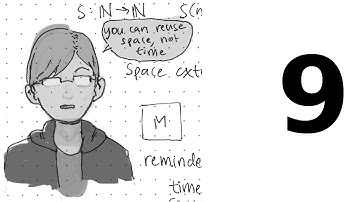 S: ℕ→ℕ S(n
you can reuse
space, not
time
Space ext
M
reminde
time
9